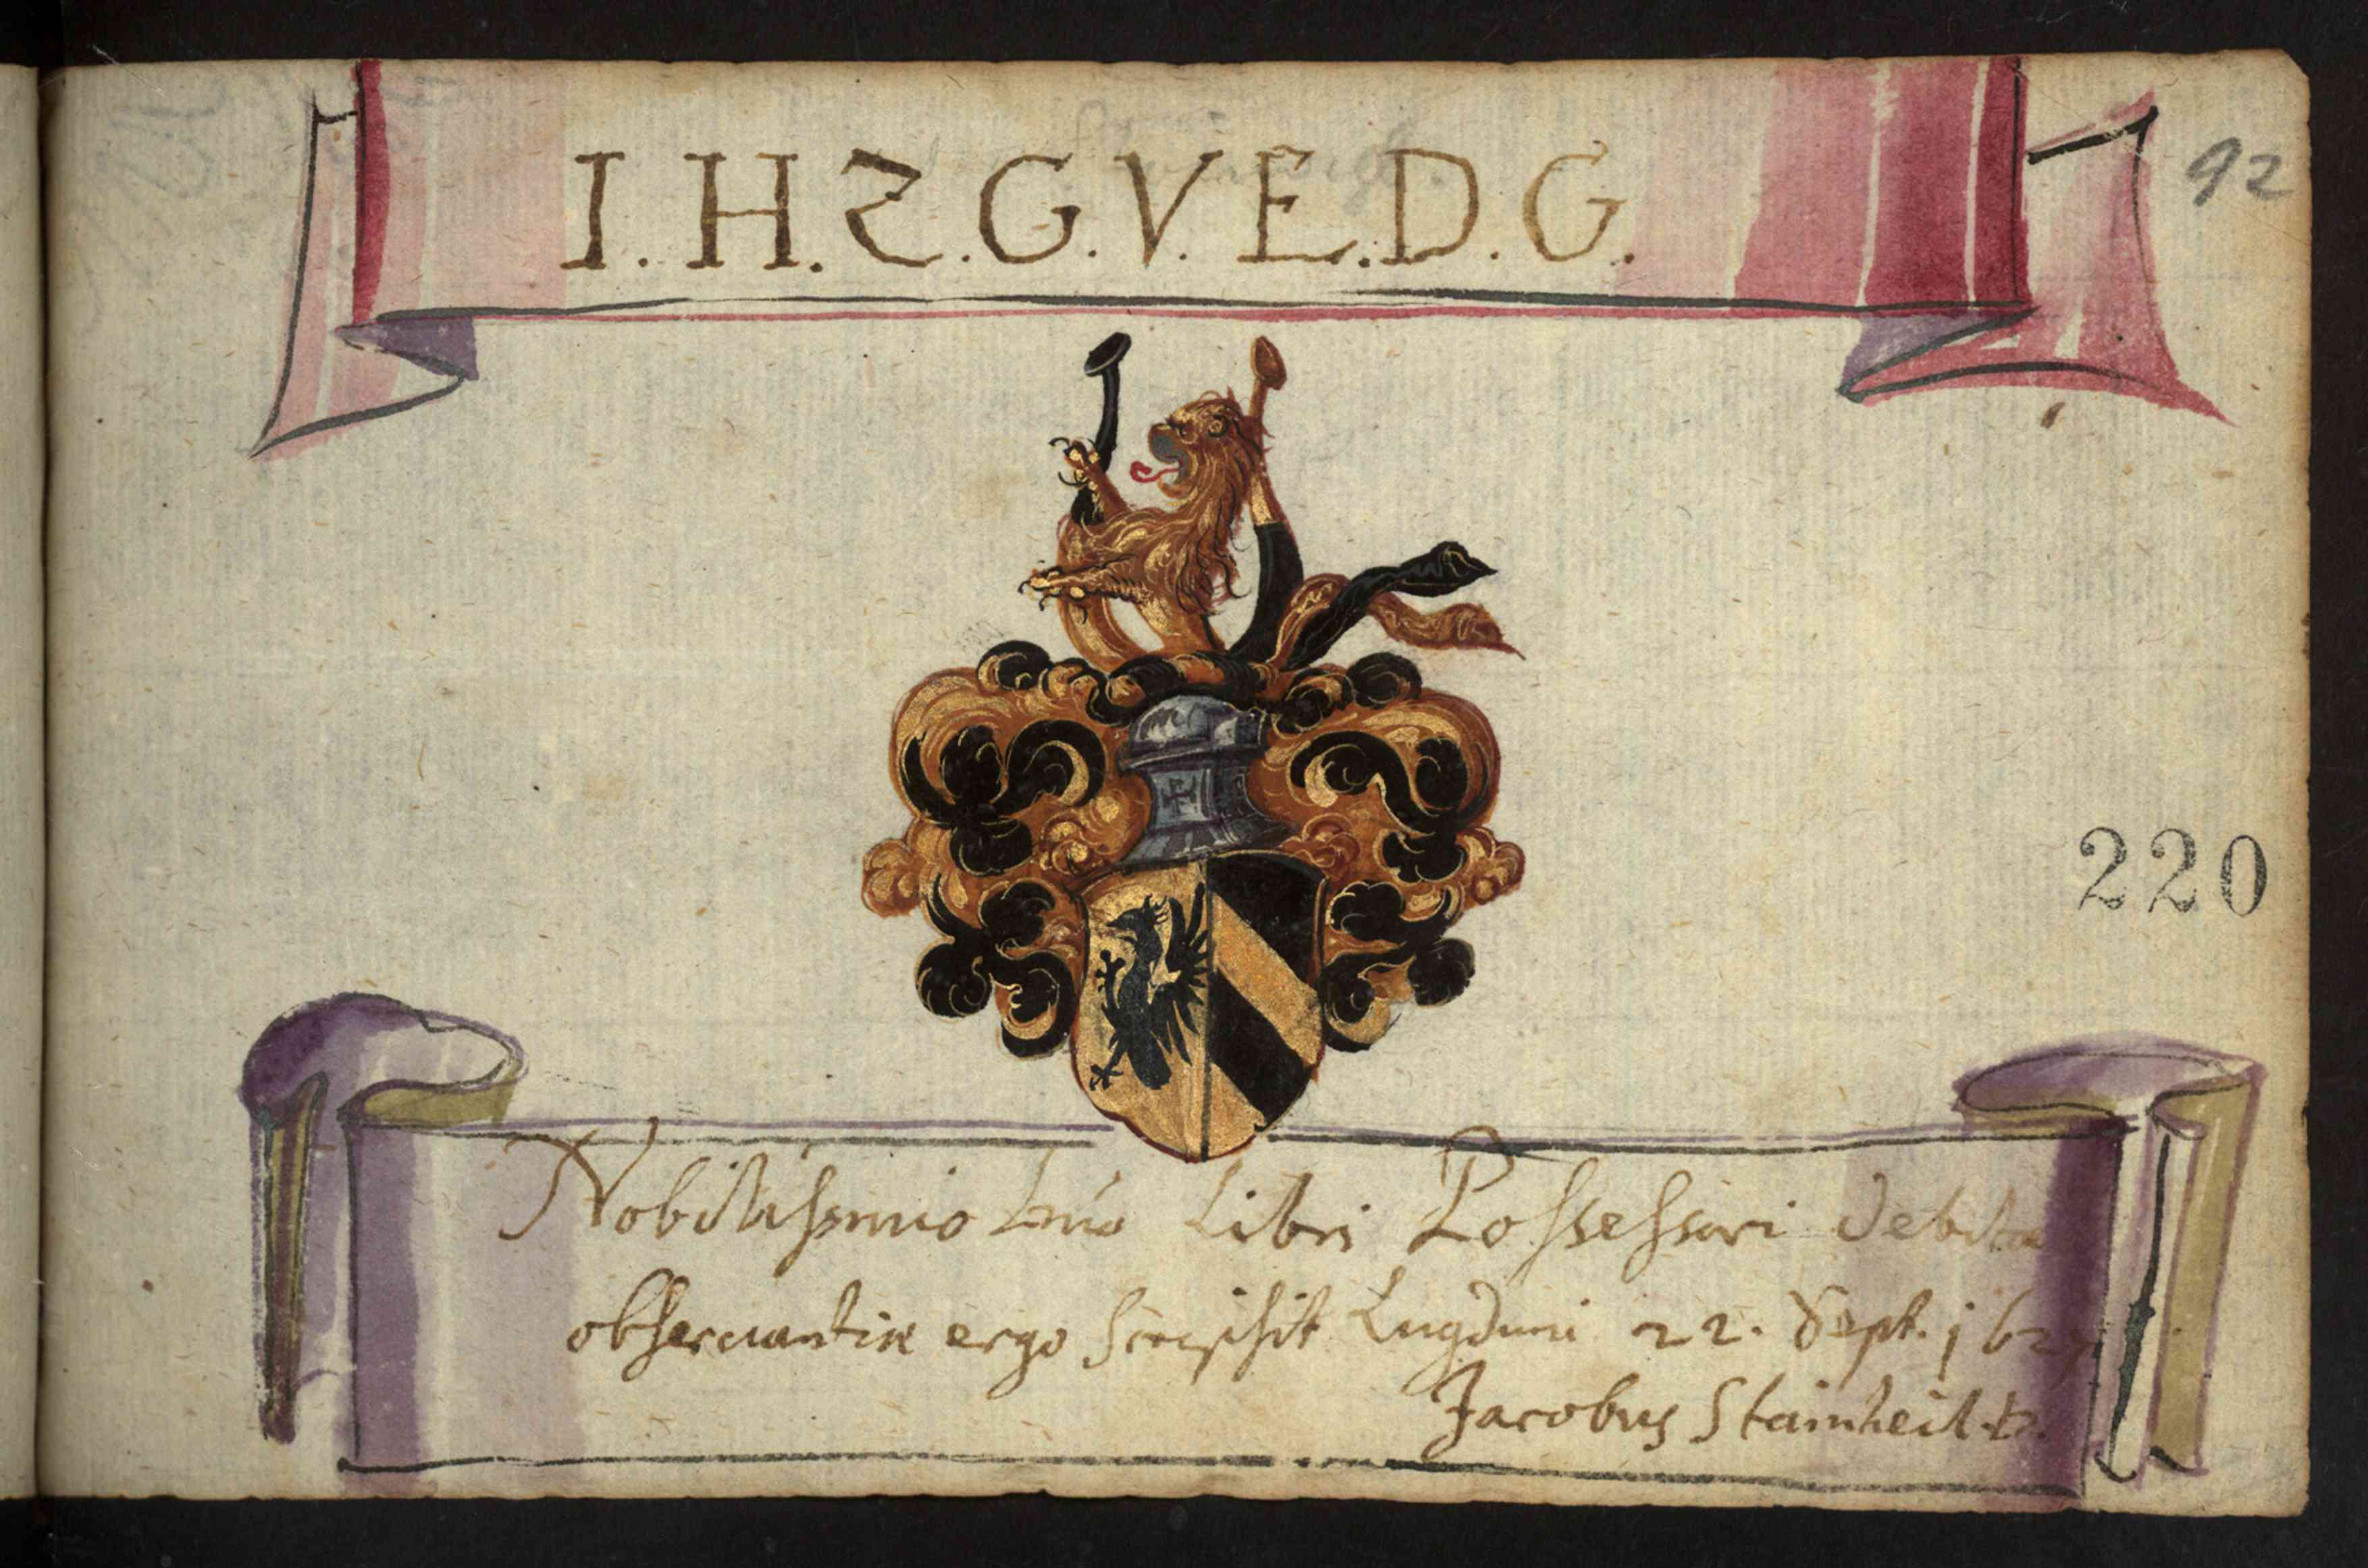 I.H.Z.G.V.E.D.G.
92
220
Nobilissimo huic Libri Possessori debitae
observantiae ergo scripsit Lugduni 22. Sept. 162
Jacobus Stainheil